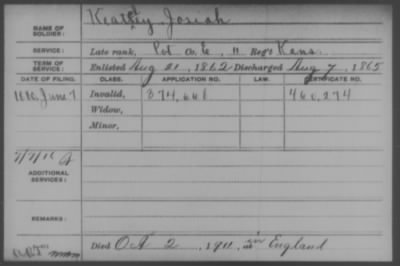 NAME OF SOLDIER: Kearsey Josiah
SERVICE: Late rank, Pvt Co. E, 11 Reg't Kans.
TERM OF SERVICE: Enlisted Aug 21, 1862 Discharged Aug 7, 1865
DATE OF FILING. CLASS. APPLICATION NO. LAW. CERTIFICATE NO.
1880, June 7 Invalid, 374,668 460,274
Widow,
Minor,
ADDITIONAL SERVICES:
REMARKS:
Died Oct 2, 1911, at England